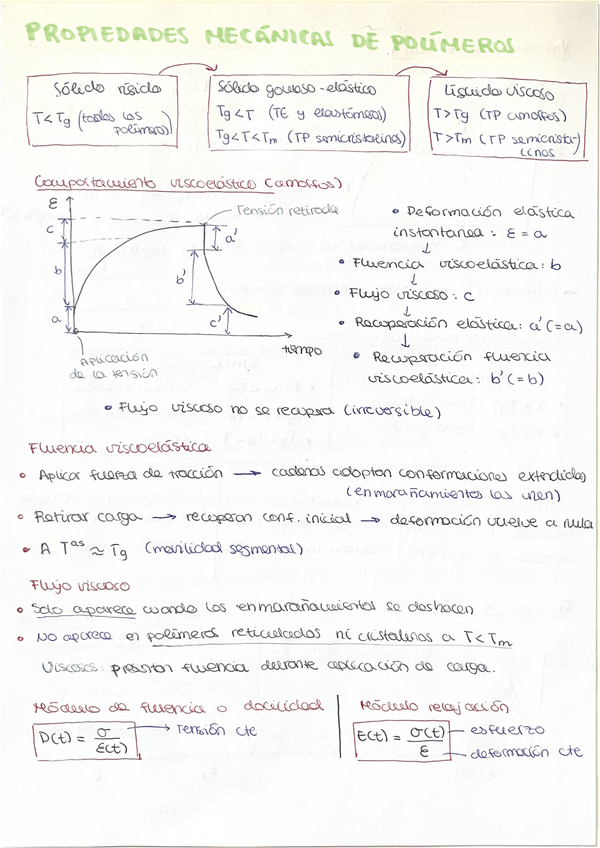 PROPIEDADES MECÁNICAS DE POLÍMEROS
Sólido rígido
T < Tg (todos los
polímeros)
Sólido gomoso-elástico
Tg < T (TE y elastómeros)
Tg < T < Tm (TP semicristalinos)
Líquido viscoso
T > Tg (TP amorfos)
T > Tm (TP semicrista-
linos
Comportamiento viscoelástico (amorfos)
ε
c
b
a
Tensión retirada
a'
b'
c'
tiempo
Aplicación
de la tensión
• Deformación elástica
instantanea : ε = a
• Fluencia viscoelástica : b
• Flujo viscoso : c
• Recuperación elástica : a' (= a)
• Recuperación fluencia
viscoelástica : b' (= b)
• Flujo viscoso no se recupera (irreversible)
Fluencia viscoelástica
• Aplicar fuerza de tracción → cadenas adoptan conformaciones extendidas
(enmarañamientos las unen)
• Retirar carga → recuperan conf. inicial → deformación vuelve a nula
• A Tas ≈ Tg (movilidad segmental)
Flujo viscoso
• Solo aparece cuando los enmarañamientos se deshacen
• No aparece en polímeros reticulados ni cristalinos a T < Tm
Viscosos : presentan fluencia durante aplicación de carga.
Módulo de fluencia o docilidad
D(t) = σ / ε(t) → Tensión cte
Módulo relajación
E(t) = σ(t) / ε — esfuerzo
— deformación cte